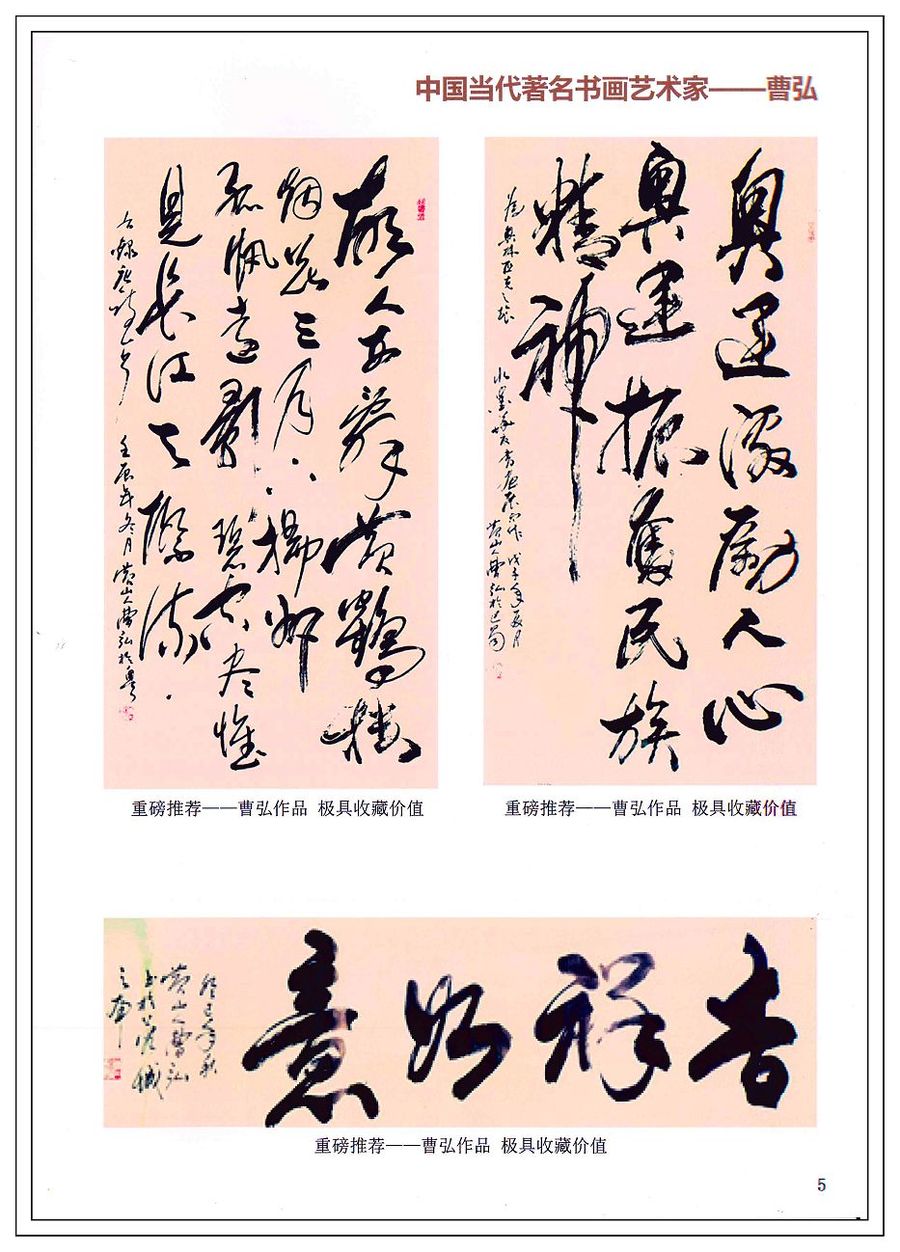 中国当代著名书画艺术家——曹弘
故人西辞黄鹤楼
烟花三月下扬州
孤帆远影碧空尽惟
见长江天际流
壬辰年冬月黄山人曹弘於粤
重磅推荐——曹弘作品 极具收藏价值
奥运激励人心
奥运振奋民族
精神
戊子年夏月
黄山人曹弘於
重磅推荐——曹弘作品 极具收藏价值
吉祥如意
癸巳年秋
黄山人曹弘
重磅推荐——曹弘作品 极具收藏价值
5